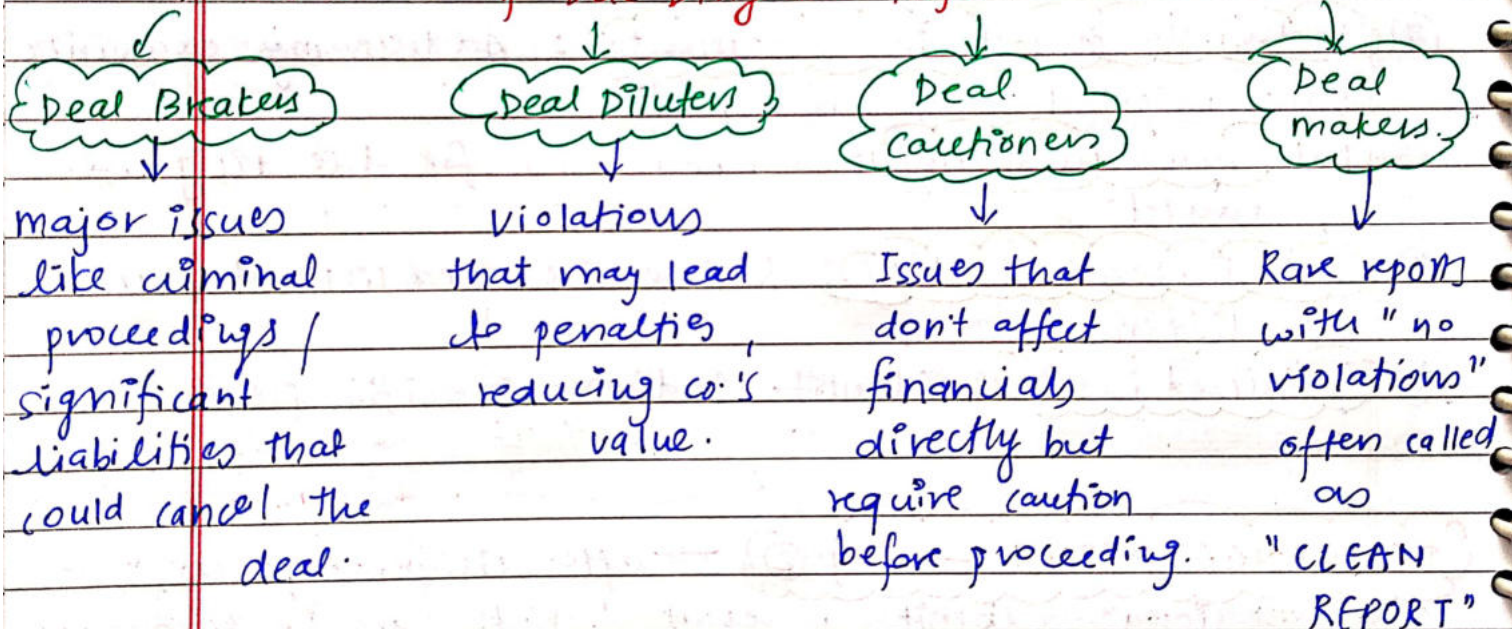 Deal Breakers
major issues
like criminal
proceedings /
significant
liabilities that
could cancel the
deal.
Deal Diluters
violations
that may lead
to penalties,
reducing co.'s
value.
Deal
cautioners
Issues that
don't affect
financials
directly but
require caution
before proceeding.
Deal
makers.
Rare reports
with "no
violations"
often called
as
"CLEAN
REPORT"